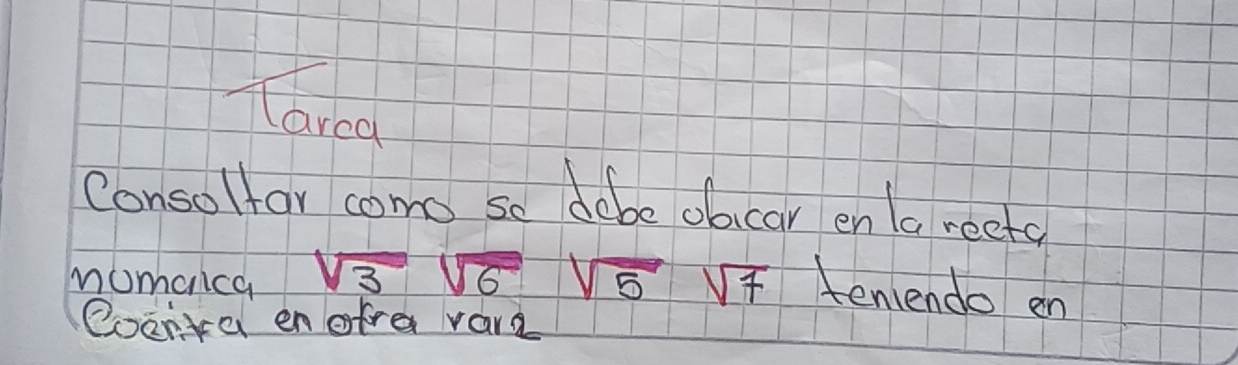 Tarea
Consoltar como se debe obicar en la recta
nomerica √3 √6 √5 √7 teniendo en
Coenta en otra raiz